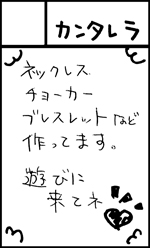 カンタレラ
ネックレス
チョーカー
ブレスレットなど
作ってます。
遊びに
来てネ